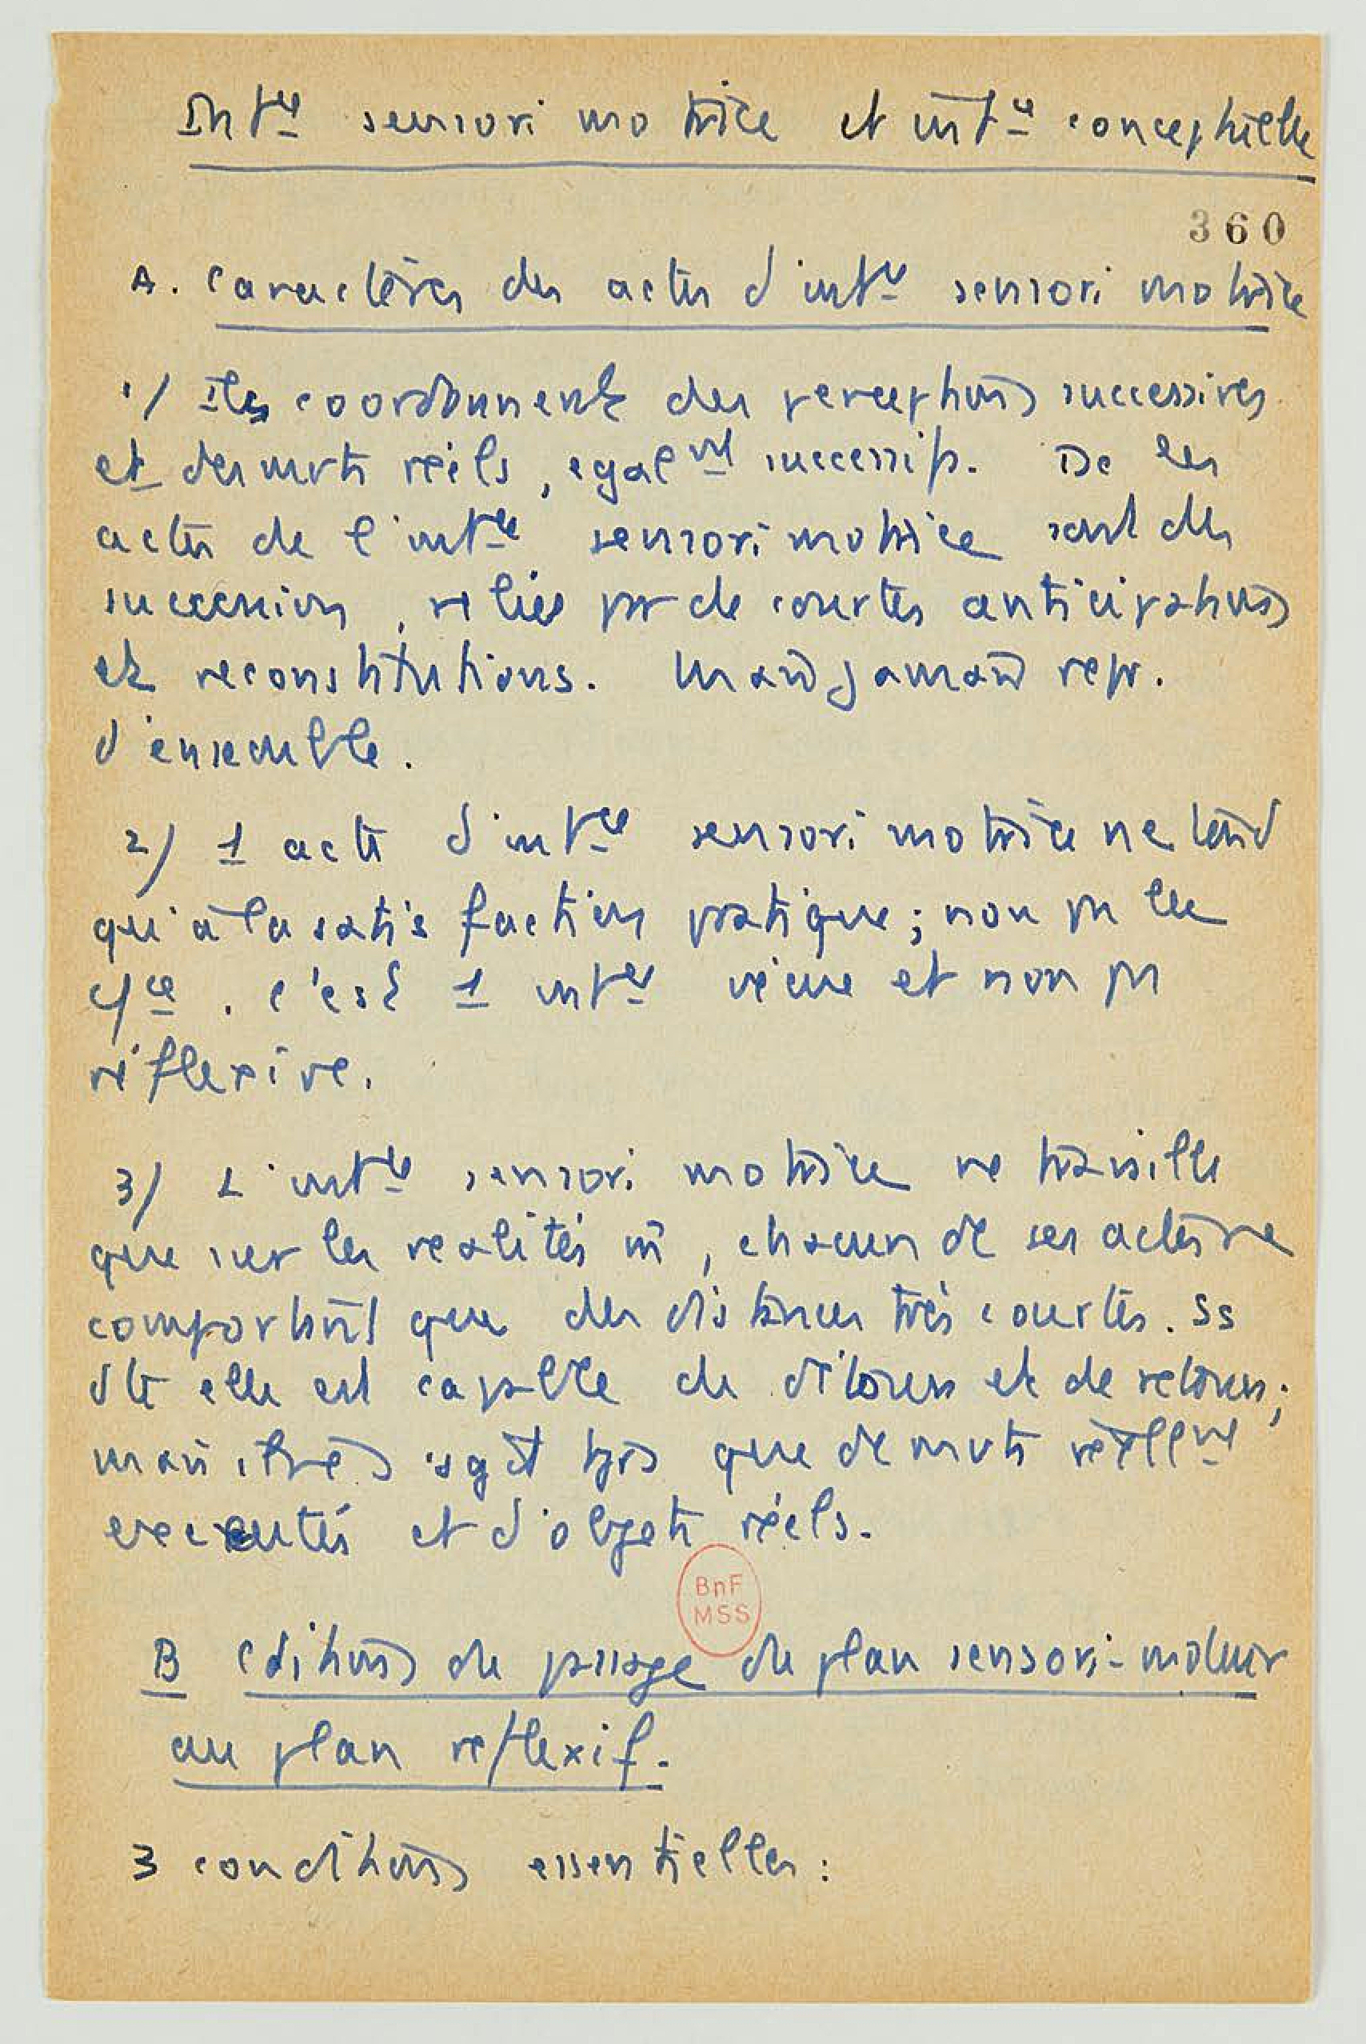 Intce sensori motrice et intce conceptuelle
360
A. Caractères des actes d'intce sensori motrice
1/ Ils coordonnent des perceptions successives
et des mvts réels, egalmt successifs. De les
actes de l'intce sensori motrice sont des
successions, reliées par de courtes anticipations
et reconstitutions. Mais jamais repr.
d'ensemble.
2) 1 acte d'intce sensori motrice ne tend
qu'à la satisfaction pratique; non pas la
cce. c'est 1 intce vécue et non pas
réflexive.
3) L'intce sensori motrice ne travaille
que sur les realités m̄, chacun de ses actes ne
comportant que des distances très courtes. Ss
dte elle est capable de détours et de retours;
mais il ne s'agit tjrs que de mvts réellmt
executés et d'objets réels.
BnF
MSS
B Cditions de passage du plan sensori-moteur
au plan reflexif.
3 conditions essentielles: